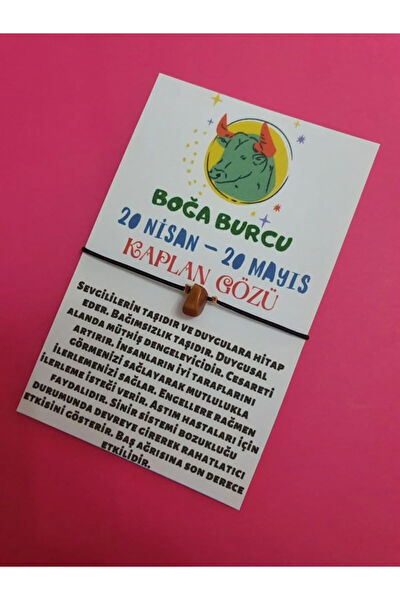 BOĞA BURCU
20 NİSAN – 20 MAYIS
KAPLAN GÖZÜ
SEVGİLİLERİN TAŞIDIR VE DUYGULARA HİTAP
EDER. BAĞIMSIZLIK TAŞIDIR. DUYGUSAL
ALANDA MÜTHİŞ DENGELEYİCİDİR. CESARETİ
ARTIRIR. İNSANLARIN İYİ TARAFLARINI
GÖRMENİZİ SAĞLAYARAK MUTLULUKLA
İLERLEMENİZİ SAĞLAR. ENGELLERE RAĞMEN
İLERLEME İSTEĞİ VERİR. ASTIM HASTALARI İÇİN
FAYDALIDIR. SİNİR SİSTEMİ BOZUKLUĞU
DURUMUNDA DEVREYE GİREREK RAHATLATICI
ETKİSİNİ GÖSTERİR. BAŞ AĞRISINA SON DERECE
ETKİLİDİR.